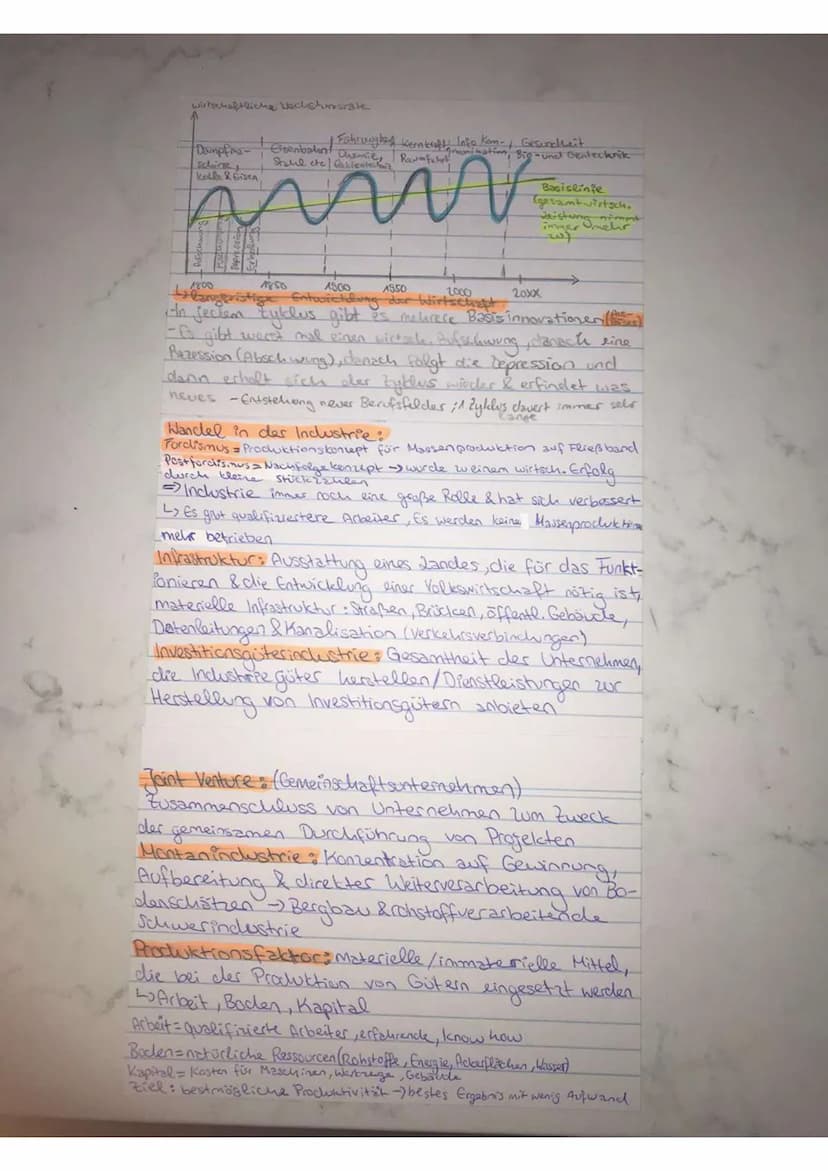 wirtschaftliche Wachstumsrate
Dampfma-
schine,
Kohle & Eisen
Eisenbahn/
Stahl etc
Fahrzeugbau
Chemie,
Kernkraft
Raumfahrt
Info Kom-
munikation,
Gesundheit
Bio- und Gentechnik
Basislinie
(gesamtwirtsch.
Leistung nimmt
immer mehr
zu)
Aufschwung
Rezession
Depression
Erholung
1800 1850 1900 1950 2000 20xx
↳ langfristige Entwicklung der Wirtschaft
- In jedem Zyklus gibt es mehrere Basisinnovationen
- Es gibt werst mal einen wirtsch. Aufschwung, danach eine
Rezession (Abschwung), danach folgt die Depression und
dann erholt sich der Zyklus wieder & erfindet was
neues - Entstehung neuer Berufsfelder ; 1 Zyklus dauert immer sehr
lange
Wandel in der Industrie:
Fordismus = Produktionskonzept für Massenproduktion auf Fließband
Postfordismus = Nachfolgekonzept → wurde zu einem wirtsch. Erfolg
durch kleine Stückzahlen
⇒ Industrie immer noch eine große Rolle & hat sich verbessert
↳ Es gibt qualifiziertere Arbeiter, Es werden keine Massenproduktion
mehr betrieben
Infrastruktur: Ausstattung eines Landes, die für das Funkt-
ionieren & die Entwicklung einer Volkswirtschaft nötig ist,
materielle Infrastruktur: Straßen, Brücken, öffentl. Gebäude,
Datenleitungen & Kanalisation (Verkehrsverbindungen)
Investitionsgüterindustrie: Gesamtheit der Unternehmen,
die Industriegüter herstellen/Dienstleistungen zur
Herstellung von Investitionsgütern anbieten
Joint Venture: (Gemeinschaftsunternehmen)
Zusammenschluss von Unternehmen zum Zweck
der gemeinsamen Durchführung von Projekten
Montanindustrie: Konzentration auf Gewinnung,
Aufbereitung & direkter Weiterverarbeitung von Bo-
denschätzen → Bergbau & rohstoffverarbeitende
Schwerindustrie
Produktionsfaktor: Materielle/immaterielle Mittel,
die bei der Produktion von Gütern eingesetzt werden
↳ Arbeit, Boden, Kapital
Arbeit = qualifizierte Arbeiter, erfahrende, know how
Boden = natürliche Ressourcen (Rohstoffe, Energie, Ackerflächen, Wasser)
Kapital = Kosten für Maschinen, Werkzeuge, Gebäude
Ziel: bestmögliche Produktivität → bestes Ergebnis mit wenig Aufwand